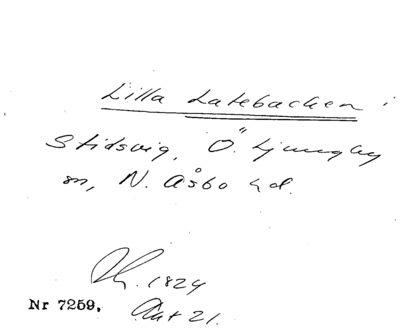 Lilla Latebacken i
Stidsvig, Ö. Ljungby
sn, N. Åsbo hd.
1824
Nr 7259. Akt 21.